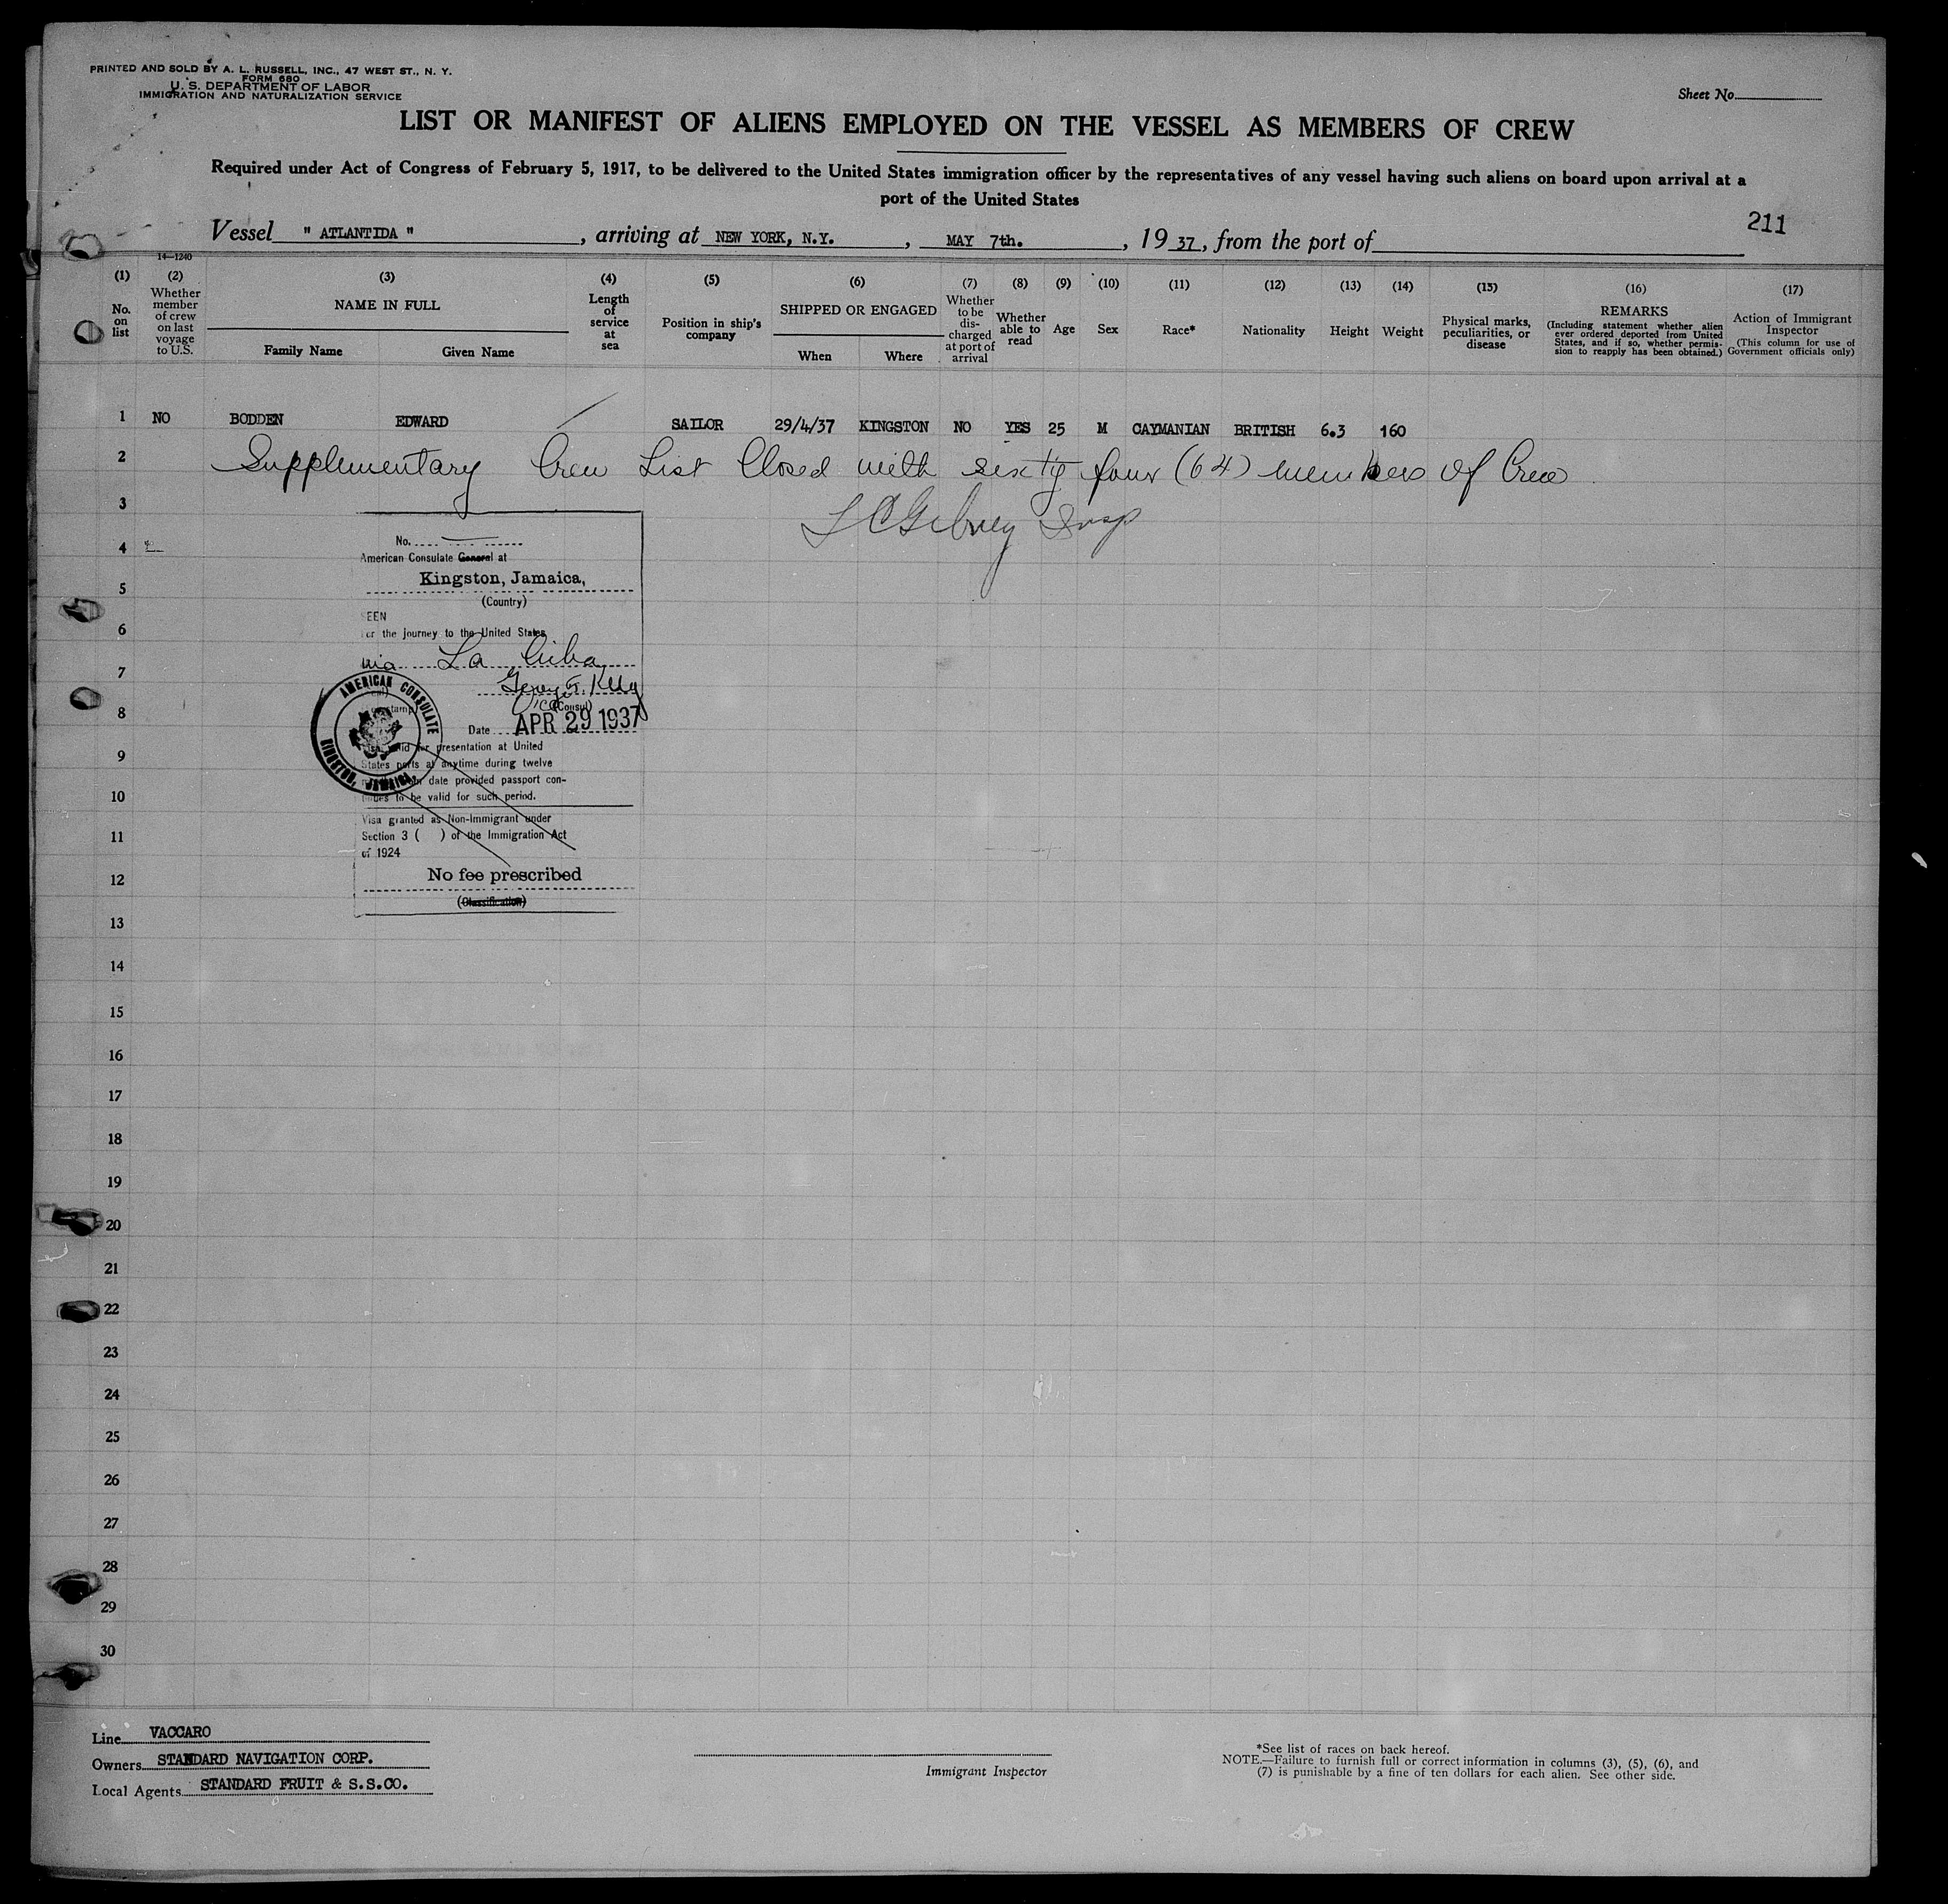 PRINTED AND SOLD BY A. L. RUSSELL, INC., 47 WEST ST., N. Y.
FORM 680
U. S. DEPARTMENT OF LABOR
IMMIGRATION AND NATURALIZATION SERVICE
Sheet No.
LIST OR MANIFEST OF ALIENS EMPLOYED ON THE VESSEL AS MEMBERS OF CREW
Required under Act of Congress of February 5, 1917, to be delivered to the United States immigration officer by the representatives of any vessel having such aliens on board upon arrival at a
port of the United States
211
Vessel " ATLANTIDA ", arriving at NEW YORK, N.Y., MAY 7th., 19 37, from the port of
14—1240
(1) No. on list
(2) Whether member of crew on last voyage to U.S.
(3) NAME IN FULL
Family Name Given Name
(4) Length of service at sea
(5) Position in ship's company
(6) SHIPPED OR ENGAGED
When Where
(7) Whether to be dis- charged at port of arrival
(8) Whether able to read
(9) Age
(10) Sex
(11) Race*
(12) Nationality
(13) Height
(14) Weight
(15) Physical marks, peculiarities, or disease
(16) REMARKS
(Including statement whether alien ever ordered deported from United States, and if so, whether permis- sion to reapply has been obtained.)
(17) Action of Immigrant Inspector
(This column for use of Government officials only)
1 NO BODDEN EDWARD SAILOR 29/4/37 KINGSTON NO YES 25 M CAYMANIAN BRITISH 6.3 160
2 Supplementary Crew List Closed with sixty four (64) members of Crew
3
4
5
6
7
8
9
10
11
12
13
14
15
16
17
18
19
20
21
22
23
24
25
26
27
28
29
30
No.
American Consulate General at
Kingston, Jamaica,
(Country)
EEN
or the journey to the United States
via La Ceiba
Vice (Consul)
Date APR 29 1937
AMERICAN CONSULATE
KINGSTON, JAMAICA.
for presentation at United
States ports at anytime during twelve
date provided passport con-
tinues to be valid for such period.
Visa granted as Non-Immigrant under
Section 3 ( ) of the Immigration Act
of 1924
No fee prescribed
(Classification)
Line VACCARO
Owners STANDARD NAVIGATION CORP.
Local Agents STANDARD FRUIT & S.S.CO.
Immigrant Inspector
*See list of races on back hereof.
NOTE.—Failure to furnish full or correct information in columns (3), (5), (6), and
(7) is punishable by a fine of ten dollars for each alien. See other side.